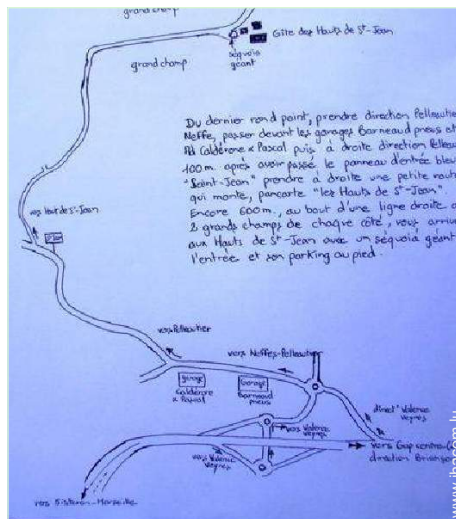 grand champ
Gîte des Hauts de St-Jean
séquoia
géant
grand champ
Du dernier rond point, prendre direction Pelleautier
Neffe, passer devant les garages Barneaud pneus et
Ad Caldérone & Pascal puis à droite direction Pelleau
100m après avoir passé le panneau d'entrée bleu
"Saint-Jean" prendre à droite une petite route
qui monte, pancarte "les Hauts de St-Jean".
Encore 600m, au bout d'une ligne droite a
2 grands champs de chaque côté, vous arrive
aux Hauts de St-Jean avec un séquoia géant
l'entrée et son parking au pied.
vers Haut de St-Jean
St Jean
vers Pelleautier
vers Neffes-Pelleautier
garage
Caldérone
& Pascal
Garage
Barneaud
pneus
direct° Valence
Veynes
vers Valence
Veynes
vers Valence
Veynes
vers Gap centre
direction Briançon
vers Sisteron-Marseille
www.iha.com.lu